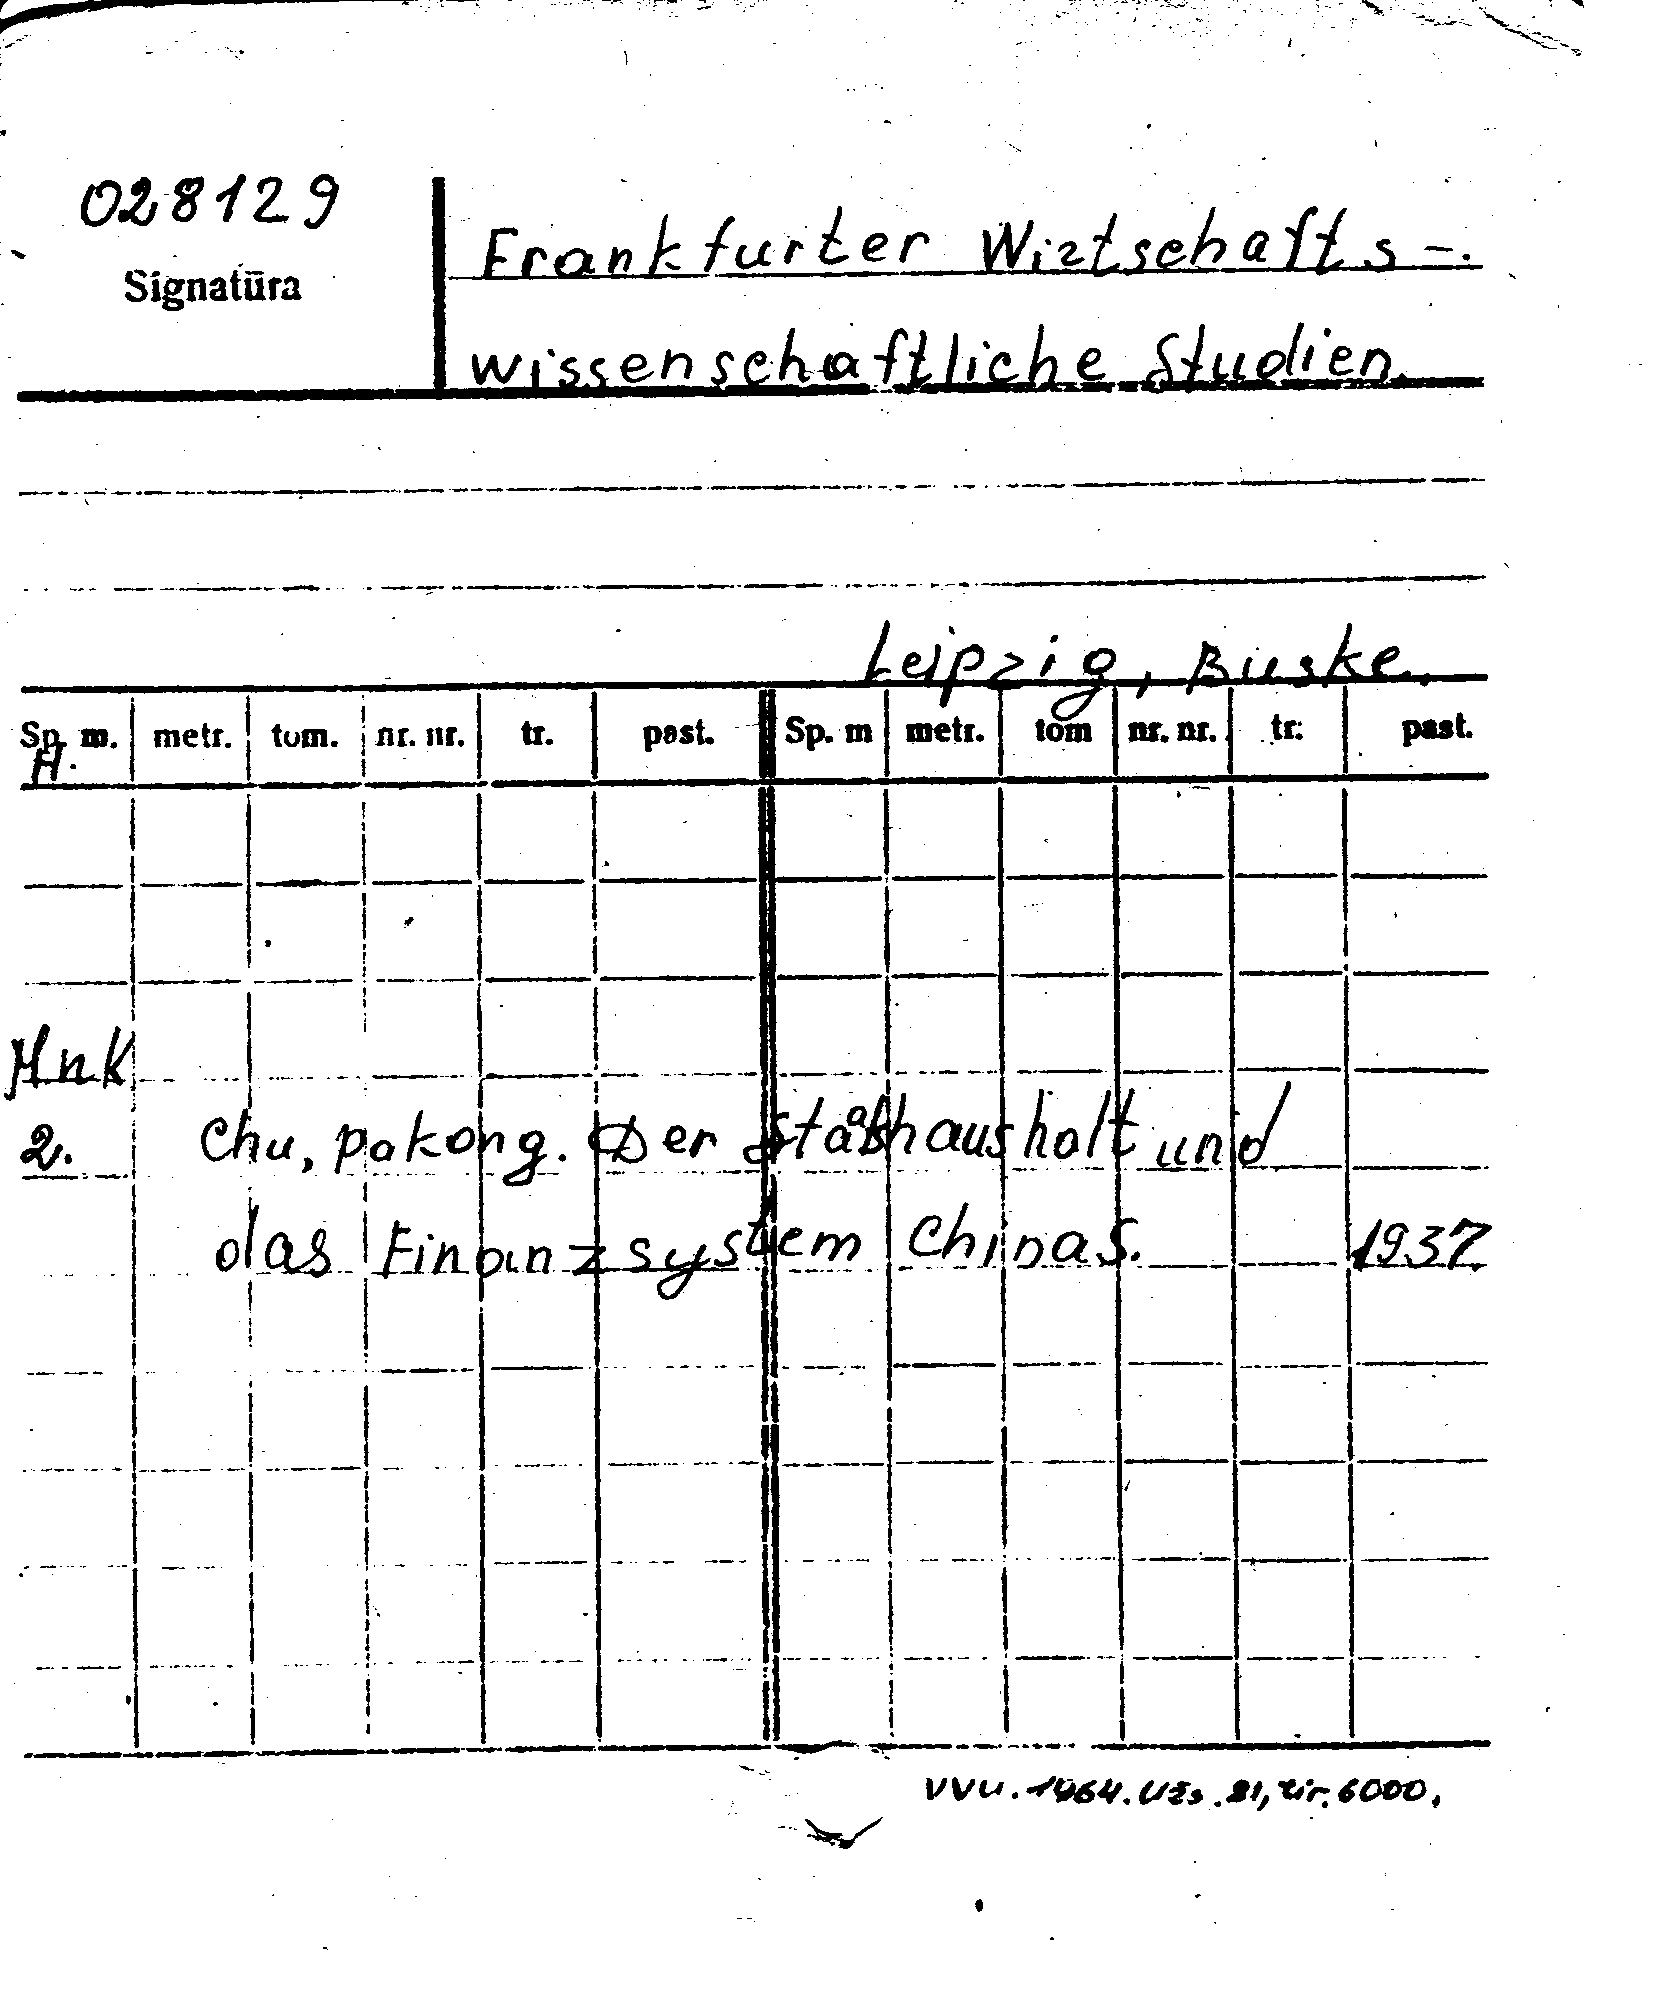 028129
Signatūra
Frankfurter Wirtschafts-.
wissenschaftliche Studien.
Leipzig, Buske.
Sp. m. metr. tom. nr. nr. tr. past. Sp. m metr. tom nr. nr. tr: past.
H.
HnK
2. Chu, pakong. Der Staatshaushalt und
das Finanzsystem Chinas. 1937.
VVU. 1964. Užs. 21, tir. 6000.